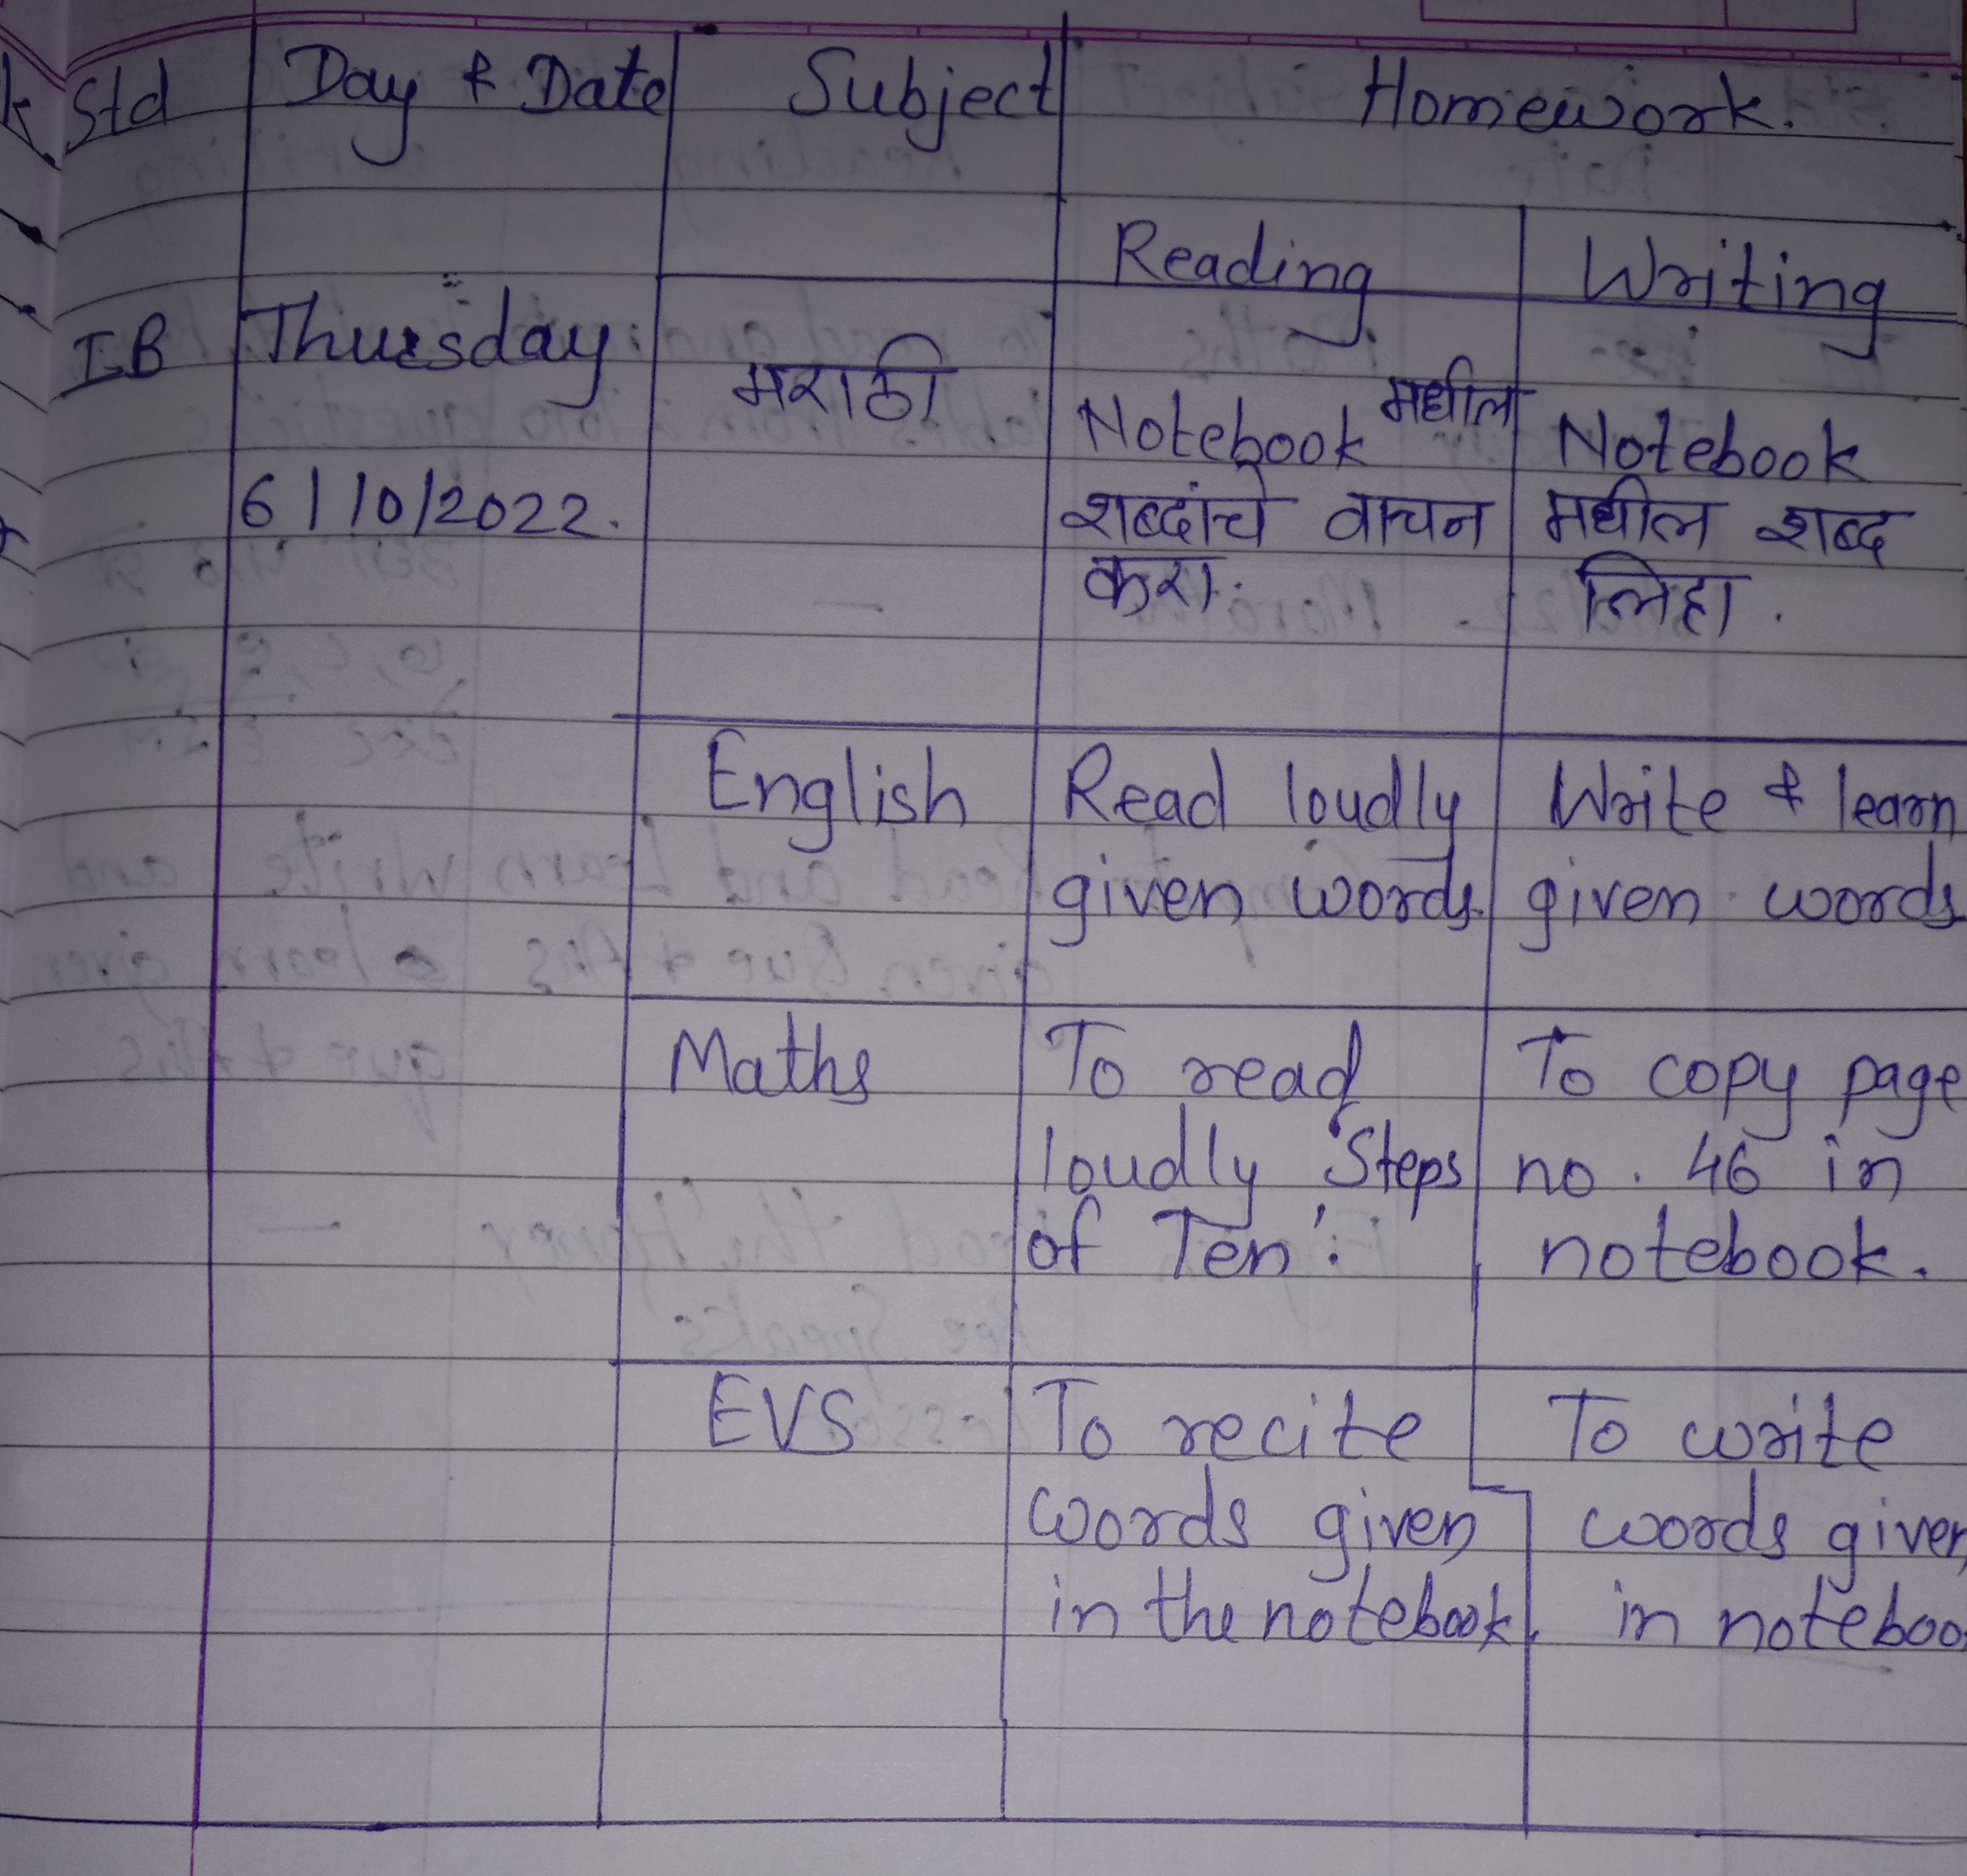 Std Day & Date Subject Homework.
Reading Writing
I-B Thursday मराठी Notebook मधील Notebook
6/10/2022. शब्दांचे वाचन मधील शब्द
करा. लिहा.
English Read loudly Write & learn
given words. given words
Maths To read To copy page
loudly 'Steps no. 46 in
of Ten'. notebook.
EVS To recite To write
words given words given
in the notebook. in noteboo